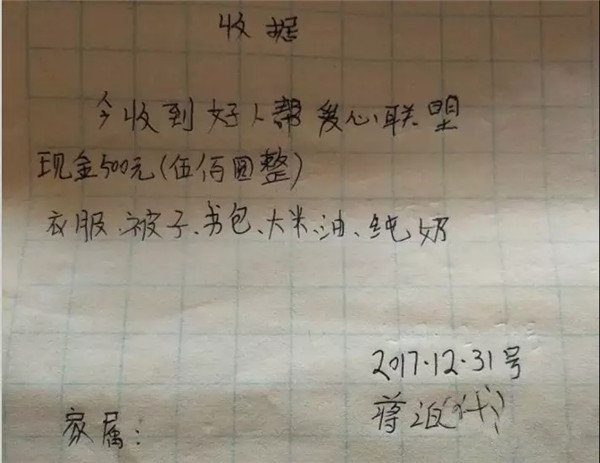 收据
今收到好人帮爱心联盟
现金500元(伍佰圆整)
衣服、被子、书包、大米、油、纯奶
2017.12.31号
蒋(代)
家属: